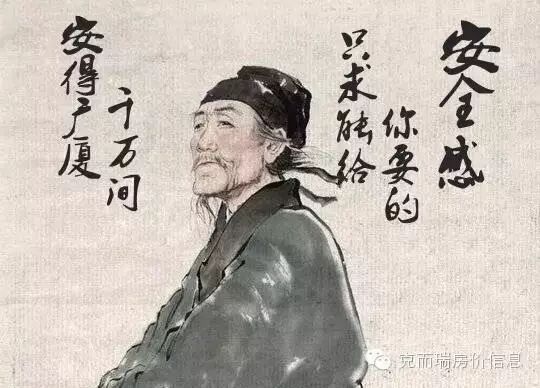 安得广厦
千万间
只求能给
你要的
安全感
克而瑞房价信息